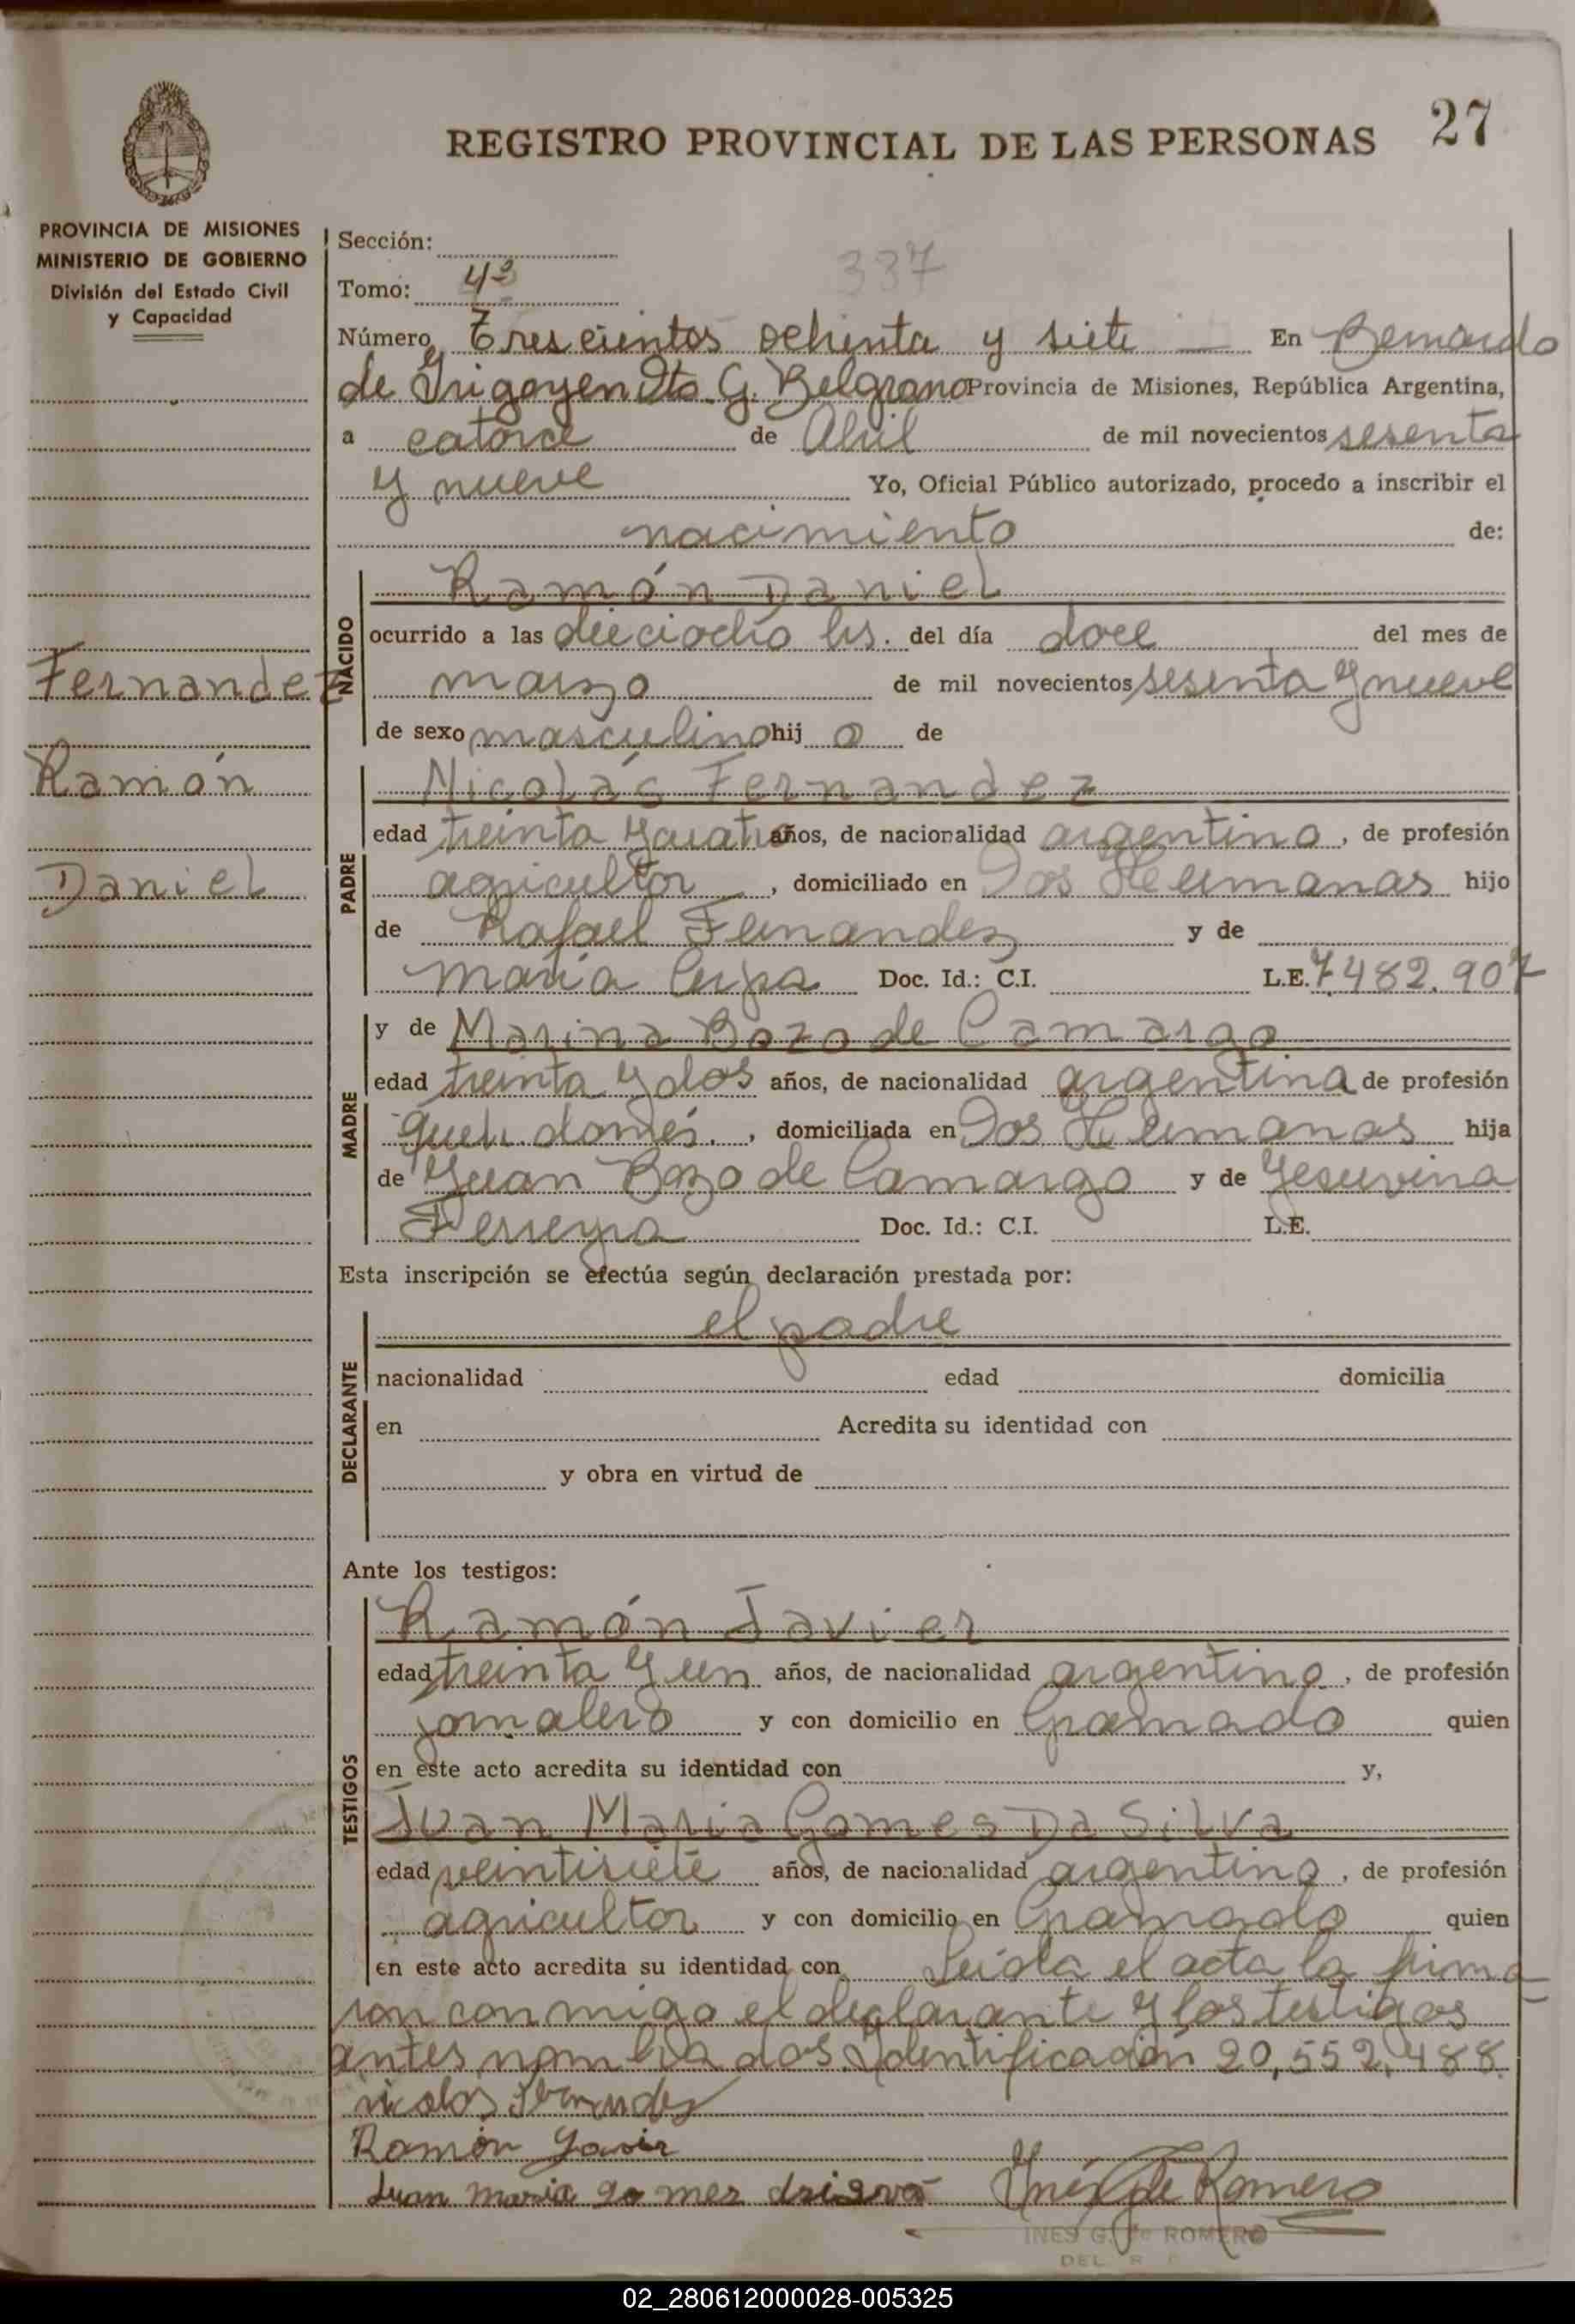 27
REGISTRO PROVINCIAL DE LAS PERSONAS
PROVINCIA DE MISIONES
MINISTERIO DE GOBIERNO
División del Estado Civil
y Capacidad
Fernandez
Ramón
Daniel
Sección:
337
Tomo: 4º
Número Trescientos ochenta y siete — En Bernardo
de Irigoyen Dto. G. Belgrano Provincia de Misiones, República Argentina,
a catorce de Abril de mil novecientos sesenta
y nueve Yo, Oficial Público autorizado, procedo a inscribir el
nacimiento de:
NACIDO
Ramón Daniel
ocurrido a las dieciocho hs. del día doce del mes de
marzo de mil novecientos sesenta y nueve
de sexo masculino hij o de
PADRE
Nicolás Fernandez
edad treinta y cuatro años, de nacionalidad argentino, de profesión
agricultor, domiciliado en Dos Hermanas hijo
de Rafael Fernandez y de
María Doc. Id.: C.I. L.E. 7.482.907
MADRE
y de Marina Bozo de Camargo
edad treinta y dos años, de nacionalidad argentina de profesión
queh. domés., domiciliada en Dos Hermanas hija
de Juan Bozo de Camargo y de Jesuvina
Ferreyra Doc. Id.: C.I. L.E.
Esta inscripción se efectúa según declaración prestada por:
DECLARANTE
el padre
nacionalidad edad domicilia
en Acredita su identidad con
y obra en virtud de
Ante los testigos:
TESTIGOS
Ramón Javier
edad treinta y un años, de nacionalidad argentino, de profesión
jornalero y con domicilio en Gramado quien
en este acto acredita su identidad con y,
Juan Maria Gomes Da Silva
edad veintisiete años, de nacionalidad argentino, de profesión
agricultor y con domicilio en Gramado quien
en este acto acredita su identidad con Leída el acta la firma
ron conmigo el declarante y los testigos
antes nombrados. Identificación 20,552,488.
nicolas
Ramón Javier
Juan maria go mez dasilva Inés G. de Romero
INES G. de ROMERO
DEL
02_280612000028-005325